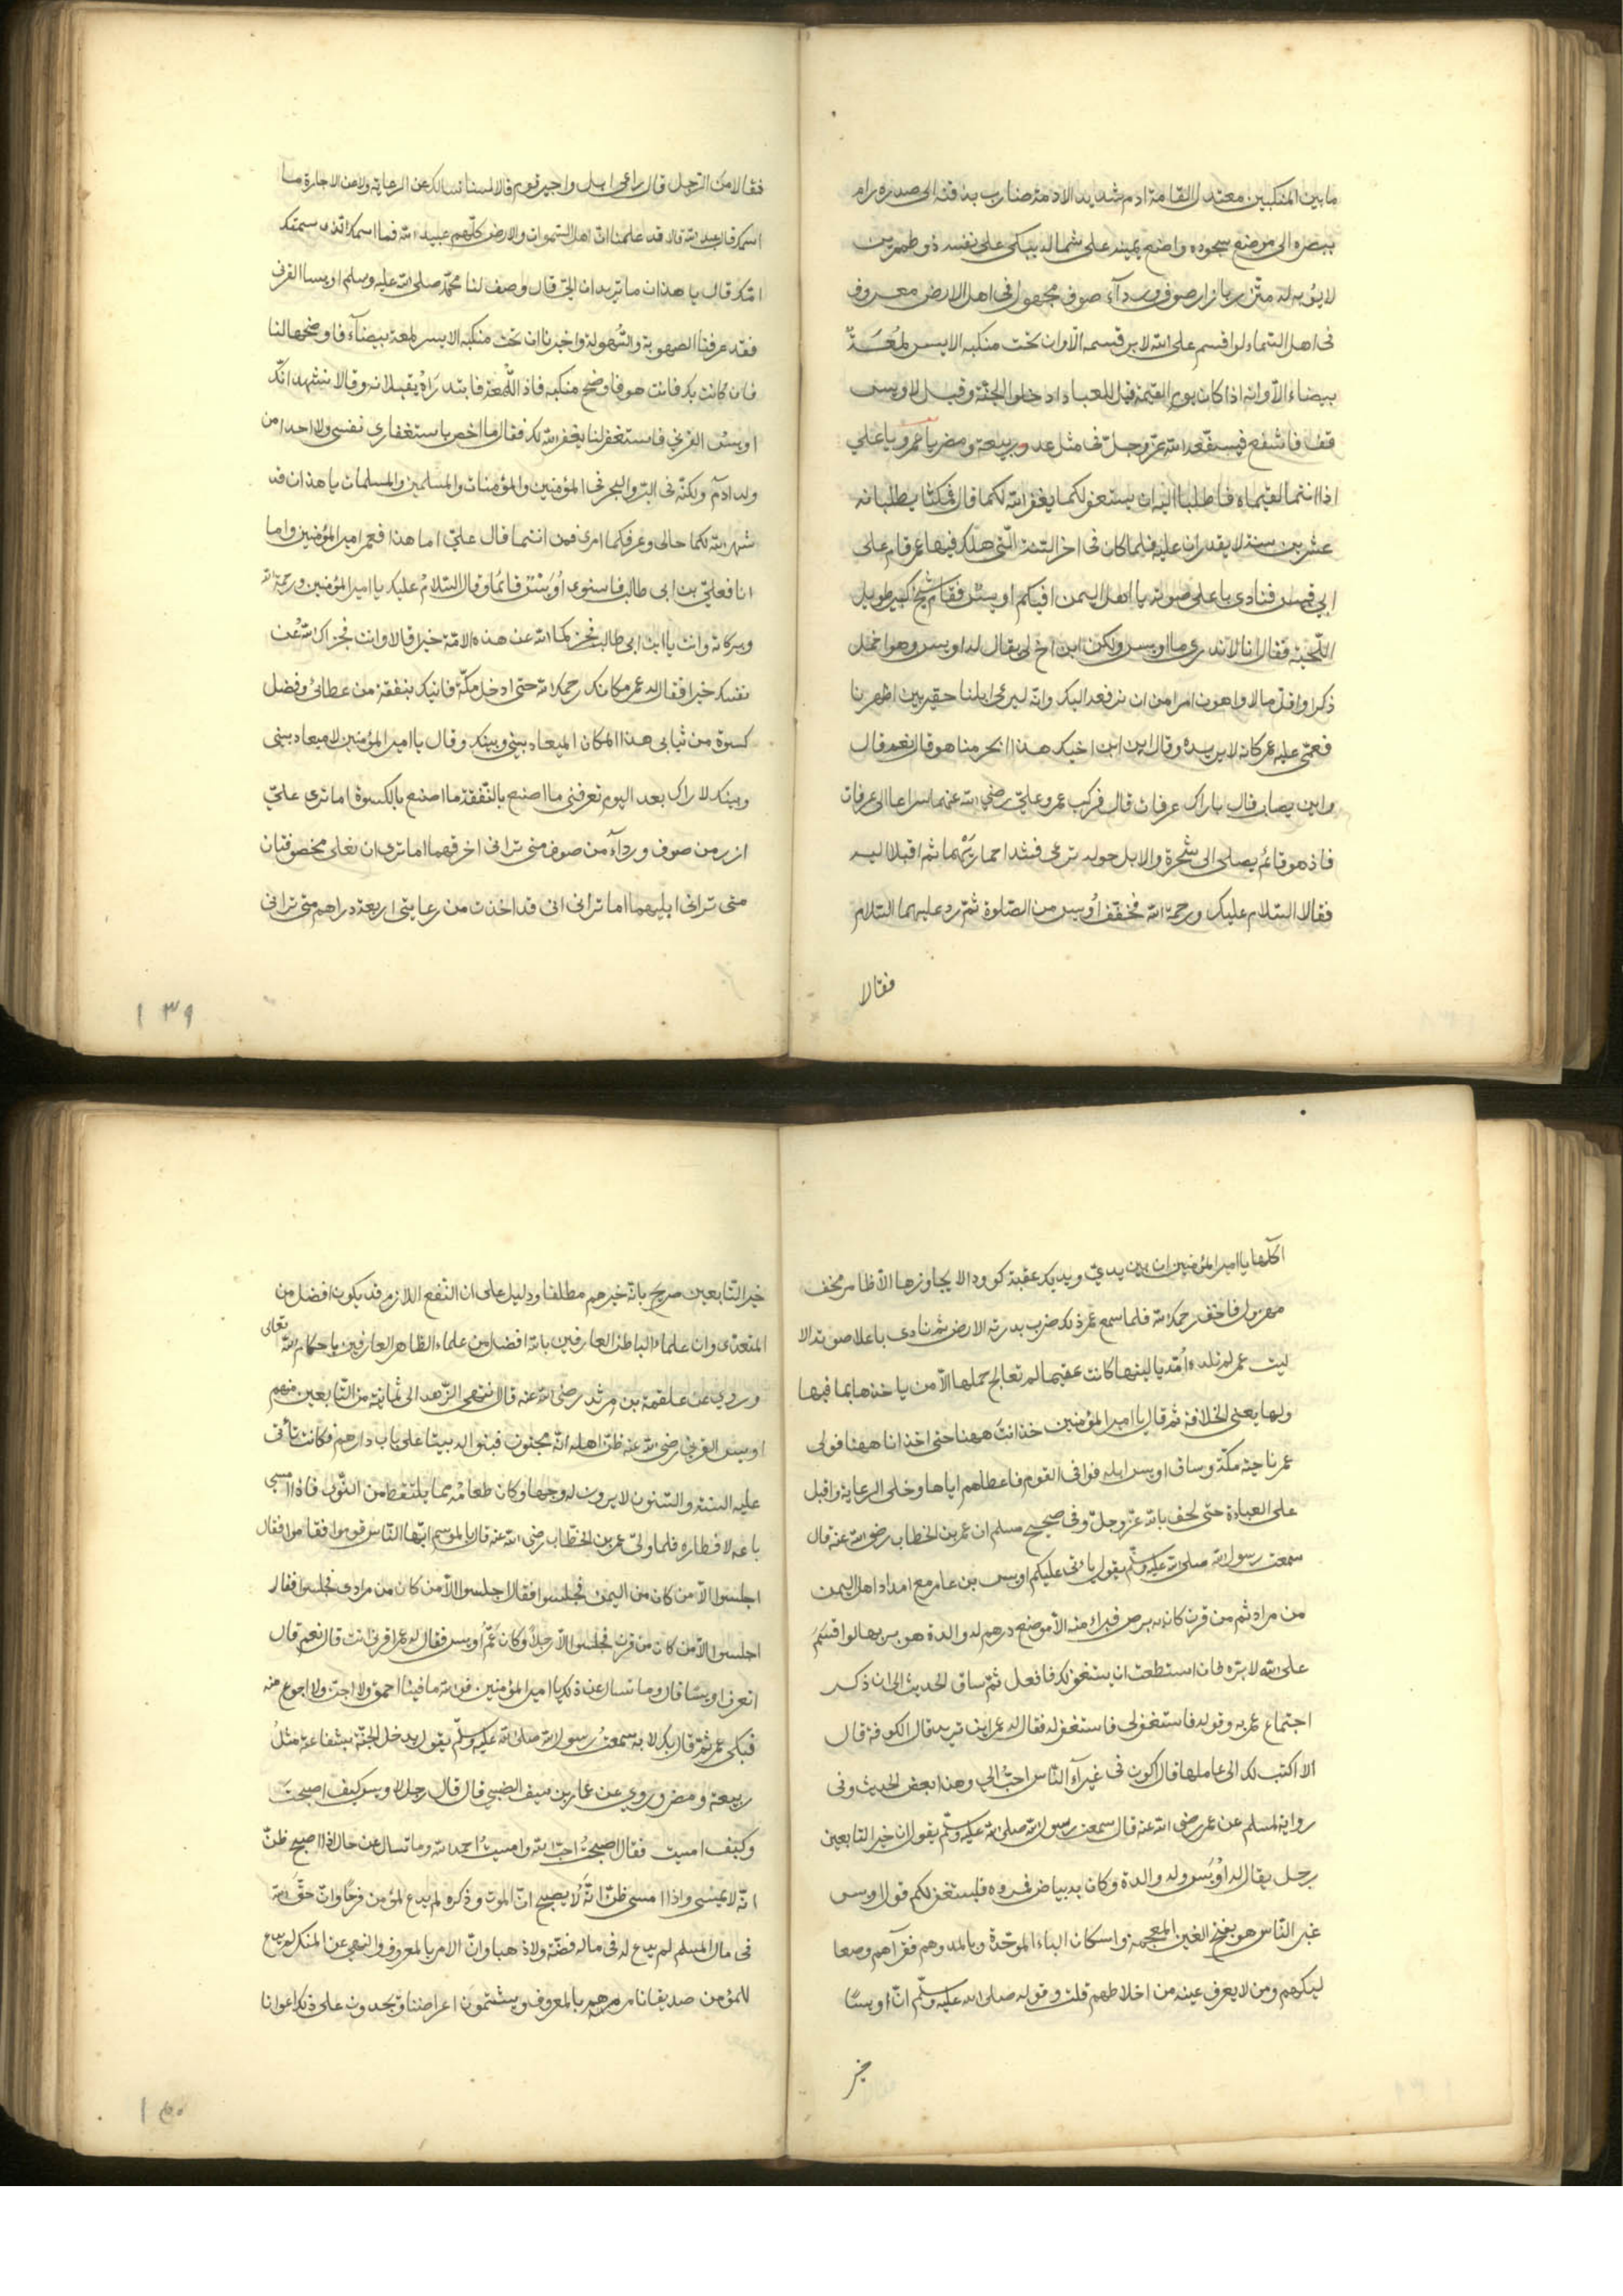 ما بين المنكبين معتدل القامة ادم شديد الادمة ضارب بذقنه الى صدره رام
ببصره الى موضع سجوده واضع يمينه على شماله يبكى على نفسه ذو طمرين
لا يؤبه له متزر بازار صوف ورداء صوف مجهول فى اهل الارض معروف
فى اهل السماء لو اقسم على الله لابر قسمه الا وان تحت منكبه الايسر لمعة
بيضاء الا وانه اذا كان يوم القيمة قيل للعباد ادخلوا الجنة وقيل لاويس
قف فاشفع فيشفعه الله عز وجل فى مثل عدد ربيعة ومضر يا عمر ويا على
اذا انتما لقيتماه فاطلبا اليه ان يستغفر لكما يغفر الله لكما قال فمكثا يطلبانه
عشرين سنة لا يقدران عليه فلما كان فى اخر السنة التى هلك فيها عمر قام على
ابى قبيس فنادى باعلى صوته يا اهل اليمن افيكم اويس فقام شيخ كبير طويل
اللحية فقال انا لا ندرى ما اويس ولكن ابن اخ لى يقال له اويس وهو اخمل
ذكرا واقل مالا واهون امرا من ان نرفعه اليك وانه ليرعى ابلنا حقير بين اظهرنا
فعمى عليه عمر كانه لا يريده وقال اين ابن اخيك هذا ابحرمنا هو قال نعم قال
واين يصاب قال باراك عرفات قال فركب عمر وعلى رضى الله عنهما سراعا الى عرفات
فاذ هو قائم يصلى الى شجرة والابل حوله ترعى فشدا حماريهما ثم اقبلا اليه
فقالا السلام عليك ورحمة الله فخفف اويس من الصلوة ثم رد عليهما السلام
فقالا
فقالا من الرجل قال راعى ابل واجير قوم قالا لسنا نسالك عن الرعاية ولا عن الاجارة ما
اسمك قال عبد الله قالا قد علمنا ان اهل السموات والارض كلهم عبيد الله فما اسمك الذى سمتك
امك قال يا هذان ما تريدان الى قال وصف لنا محمد صلى الله عليه وسلم اويسا القرنى
فقد عرفنا الصهوبة والشهولة واخبرنا ان تحت منكبه الايسر لمعة بيضاء فاوضحها لنا
فان كانت بك فانت هو فاوضح منكبه فاذ اللمعة فابتدراه يقبلانه وقالا نشهد انك
اويس القرنى فاستغفر لنا يغفر الله لك فقال ما اخص باستغفارى نفسى ولا احدا من
ولد ادم ولكنه فى البر والبحر فى المؤمنين والمؤمنات والمسلمين والمسلمات يا هذان قد
شهر الله لكما حالى وعرفكما امرى فمن انتما قال على اما هذا فعمر امير المؤمنين واما
انا فعلى بن ابى طالب فاستوى اويس قائما وقال السلام عليك يا امير المؤمنين ورحمة الله
وبركاته وانت يا ابن ابى طالب فجزاكما الله عن هذه الامة خيرا قالا وانت فجزاك الله عن
نفسك خيرا فقال له عمر مكانك رحمك الله حتى ادخل مكة فاتيك بنفقة من عطائى وفضل
كسوة من ثيابى هذا المكان الميعاد بينى وبينك وقال يا امير المؤمنين لا ميعاد بينى
وبينك لا اراك بعد اليوم تعرفنى ما اصنع بالنفقة ما اصنع بالكسوة اما ترى على
ازر من صوف ورداء من صوف متى ترانى اخرقهما اما ترى ان نعلى مخصوفتان
متى ترانى ابليهما اما ترانى انى قد اخذت من رعايتى اربعة دراهم متى ترانى
١٣٩
اكلها يا امير المؤمنين ان بين يدى ويديك عقبة كؤودا لا يجاوزها الا ظامر مخف
مهزول فاخف رحمك الله فلما سمع عمر ذلك ضرب بدرته الارض ثم نادى باعلا صوته الا
ليت عمر لم تلده امه يا ليتها كانت عقيما لم تعالج حملها الا من ياخذها بما فيها
ولها يعنى الخلافة ثم قال يا امير المؤمنين خذ انت ههنا حتى اخذ انا ههنا فولى
عمر ناحية مكة وساق اويس ابله فوافى القوم فاعطاهم اياها وخلى الرعاية واقبل
على العبادة حتى لحق بالله عز وجل وفى صحيح مسلم ان عمر بن الخطاب رضى الله عنه قال
سمعت رسول الله صلى الله عليه وسلم يقول ياتى عليكم اويس بن عامر مع امداد اهل اليمن
من مراد ثم من قرن كان به برص فبرا منه الا موضع درهم له والدة هو بر بها لو اقسم
على الله لابره فان استطعت ان يستغفر لك فافعل ثم ساق الحديث الى ان ذكر
اجتماع عمر به وقوله فاستغفر لى فاستغفر له فقال له عمر اين تريد قال الكوفة قال
الا اكتب لك الى عاملها قال اكون فى غبراء الناس احب الى وهذا بعض الحديث وفى
رواية لمسلم عن عمر رضى الله عنه قال سمعت رسول الله صلى الله عليه وسلم يقول ان خير التابعين
رجل يقال له اويس وله والدة وكان به بياض فمروه فليستغفر لكم قول اويس
غبر الناس هو بفتح الغين المعجمة واسكان الباء الموحدة وبالمد وهم فقرآهم وصعا
ليكهم ومن لا يعرف عينه من اخلاطهم قلت وقوله صلى الله عليه وسلم ان اويسا
خير
خير التابعين صريح بانه خيرهم مطلقا ودليل على ان النفع اللازم قد يكون افضل من
المتعدى وان علماء الباطن العارفين بالله افضل من علماء الظاهر العارفين باحكام الله تعالى
وروى عن علقمة بن مرثد رضى الله عنه قال انتهى الزهد الى ثمانية من التابعين منهم
اويس القرنى رضى الله عنه ظن اهله انه مجنون فبنوا له بيتا على باب دارهم فكانت تأتى
عليه السنة والسنون لا يرون له وجها وكان طعامه مما يلتقط من النوى فاذا امسى
باعه لافطاره فلما ولى عمر بن الخطاب رضى الله عنه قال بالموسم ايها الناس قوموا فقاموا فقال
اجلسوا الا من كان من اليمن فجلسوا فقال اجلسوا الا من كان من مراد فجلسوا فقال
اجلسوا الا من كان من قرن فجلسوا الا رجلا وكان عم اويس فقال له عمر اقرنى انت قال نعم قال
اتعرف اويسا قال وما تسال عن ذلك يا امير المؤمنين فوالله ما فينا احمق ولا اجن ولا احوج منه
فبكى عمر ثم قال بك لا به سمعت رسول الله صلى الله عليه وسلم يقول يدخل الجنة بشفاعته مثل
ربيعة ومضر وروى عن عمار بن سيف الضبى قال قال رجل لاويس كيف اصبحت
وكيف امسيت فقال اصبحت احب الله وامسيت احمد الله وما تسال عن حال اذا اصبح ظن
انه لا يمسى واذا امسى ظن انه لا يصبح ان الموت وذكره لم يدع لمؤمن فرحا وان حق الله
فى مال المسلم لم يدع له فى ماله فضة ولا ذهبا وان الامر بالمعروف والنهى عن المنكر لم يدع
للمؤمن صديقا نامرهم بالمعروف ويشتمون اعراضنا ويجدون على ذلك اعوانا
١٤٠